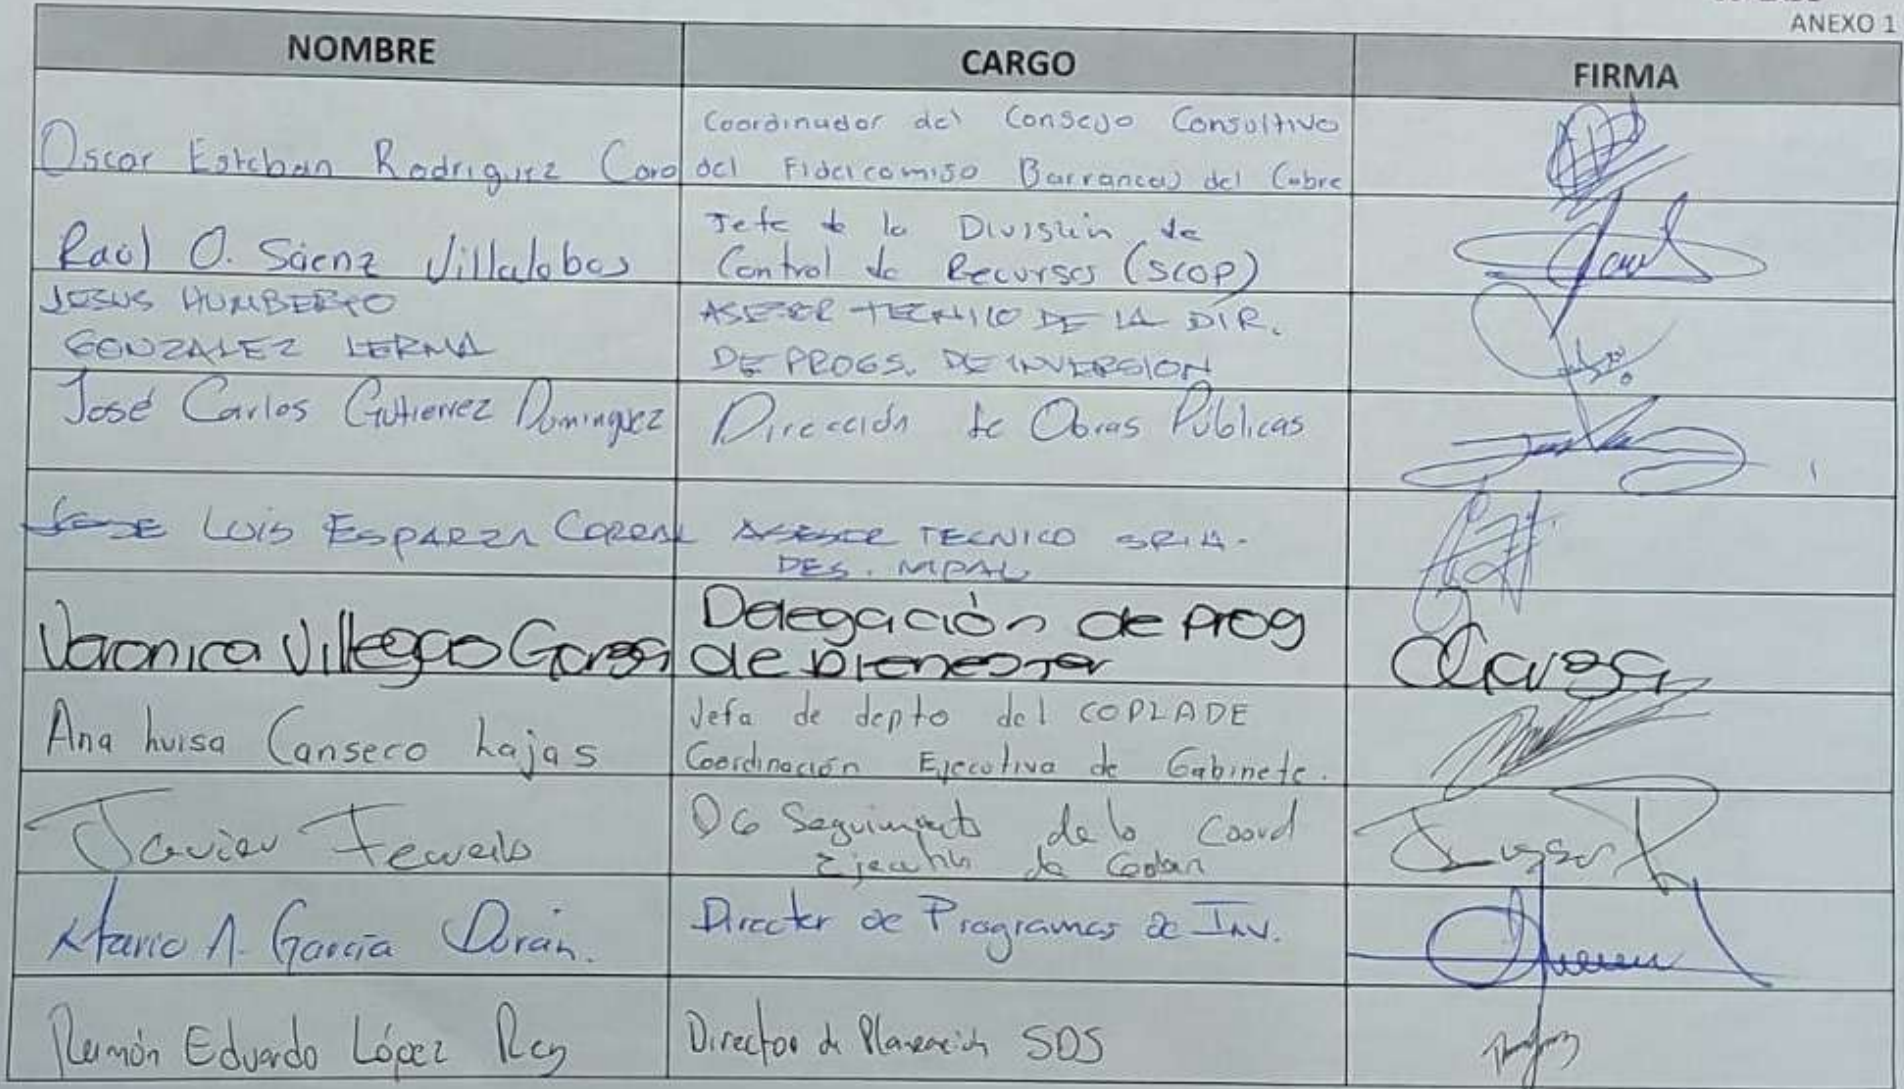 ANEXO 1
NOMBRE CARGO FIRMA
Coordinador del Consejo Consultivo
Oscar Esteban Rodriguez Caro del Fideicomiso Barrancas del Cobre
Raúl O. Sáenz Villalobos
Jefe de la División de
Control de Recursos (SCOP)
JESUS HUMBERTO
GONZALEZ LERMA
ASESOR TECNICO DE LA DIR.
DE PROGS. DE INVERSION
José Carlos Gutierrez Dominguez Dirección de Obras Públicas
JOSE LUIS ESPARZA CORRAL ASESOR TECNICO SRIA.
DES. MPAL
Veronica Villegas Garza
Delegación de prog
de bienestar
Garza
Ana Luisa Canseco Lajas
Jefa de depto del COPLADE
Coordinación Ejecutiva de Gabinete.
Javier
DG Seguimiento de la Coord
Ejecutiva de
Mario A. García Durán. Director de Programas de Inv.
Ramón Eduardo López Rey Director de Planeación SDS